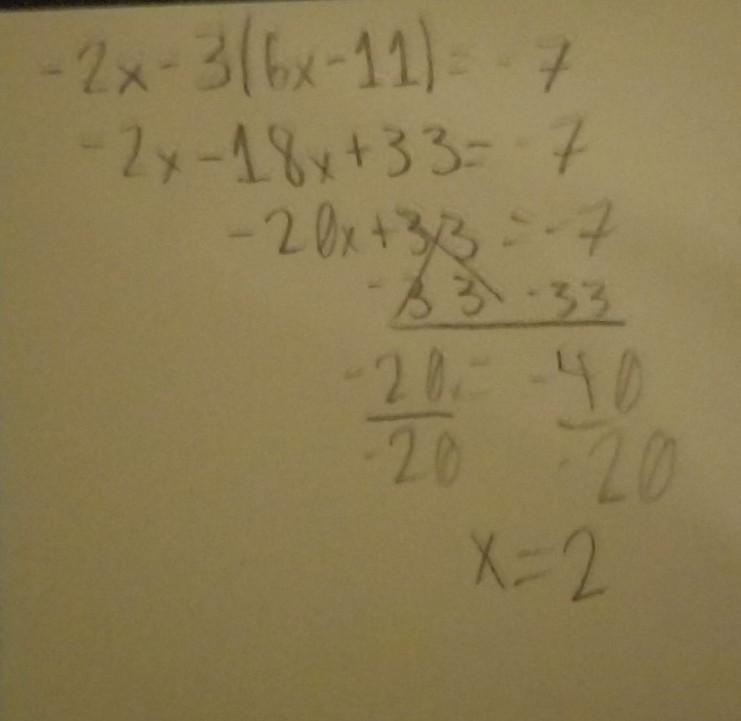 -2x-3(6x-11)=-7
-2x-18x+33=-7
-20x+33=-7
-33 -33
-20x=-40
-20 -20
x=2